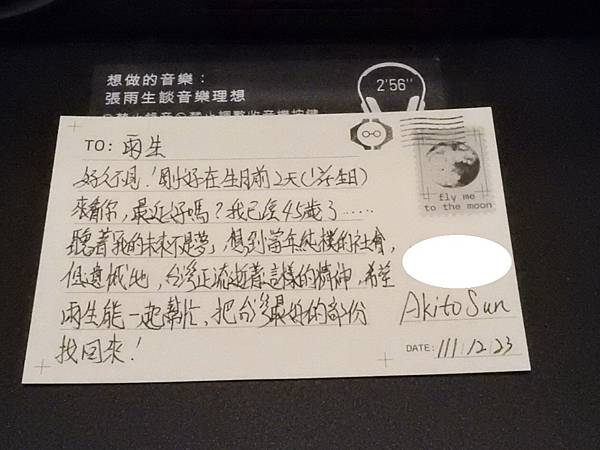 想做的音樂：
張雨生談音樂理想
2'56"
TO: 雨生
好久不見！剛好在生日前2天(生日)
來看你，最近好嗎？我已經45歲了……
聽著我的未來不是夢，想到當年純樸的社會，
但遺憾地，台灣正流逝著這樣的精神，希望
雨生能一起幫忙、把台灣最好的部份
找回來！
fly me
to the moon
Akito Sun
DATE: 111/12/23